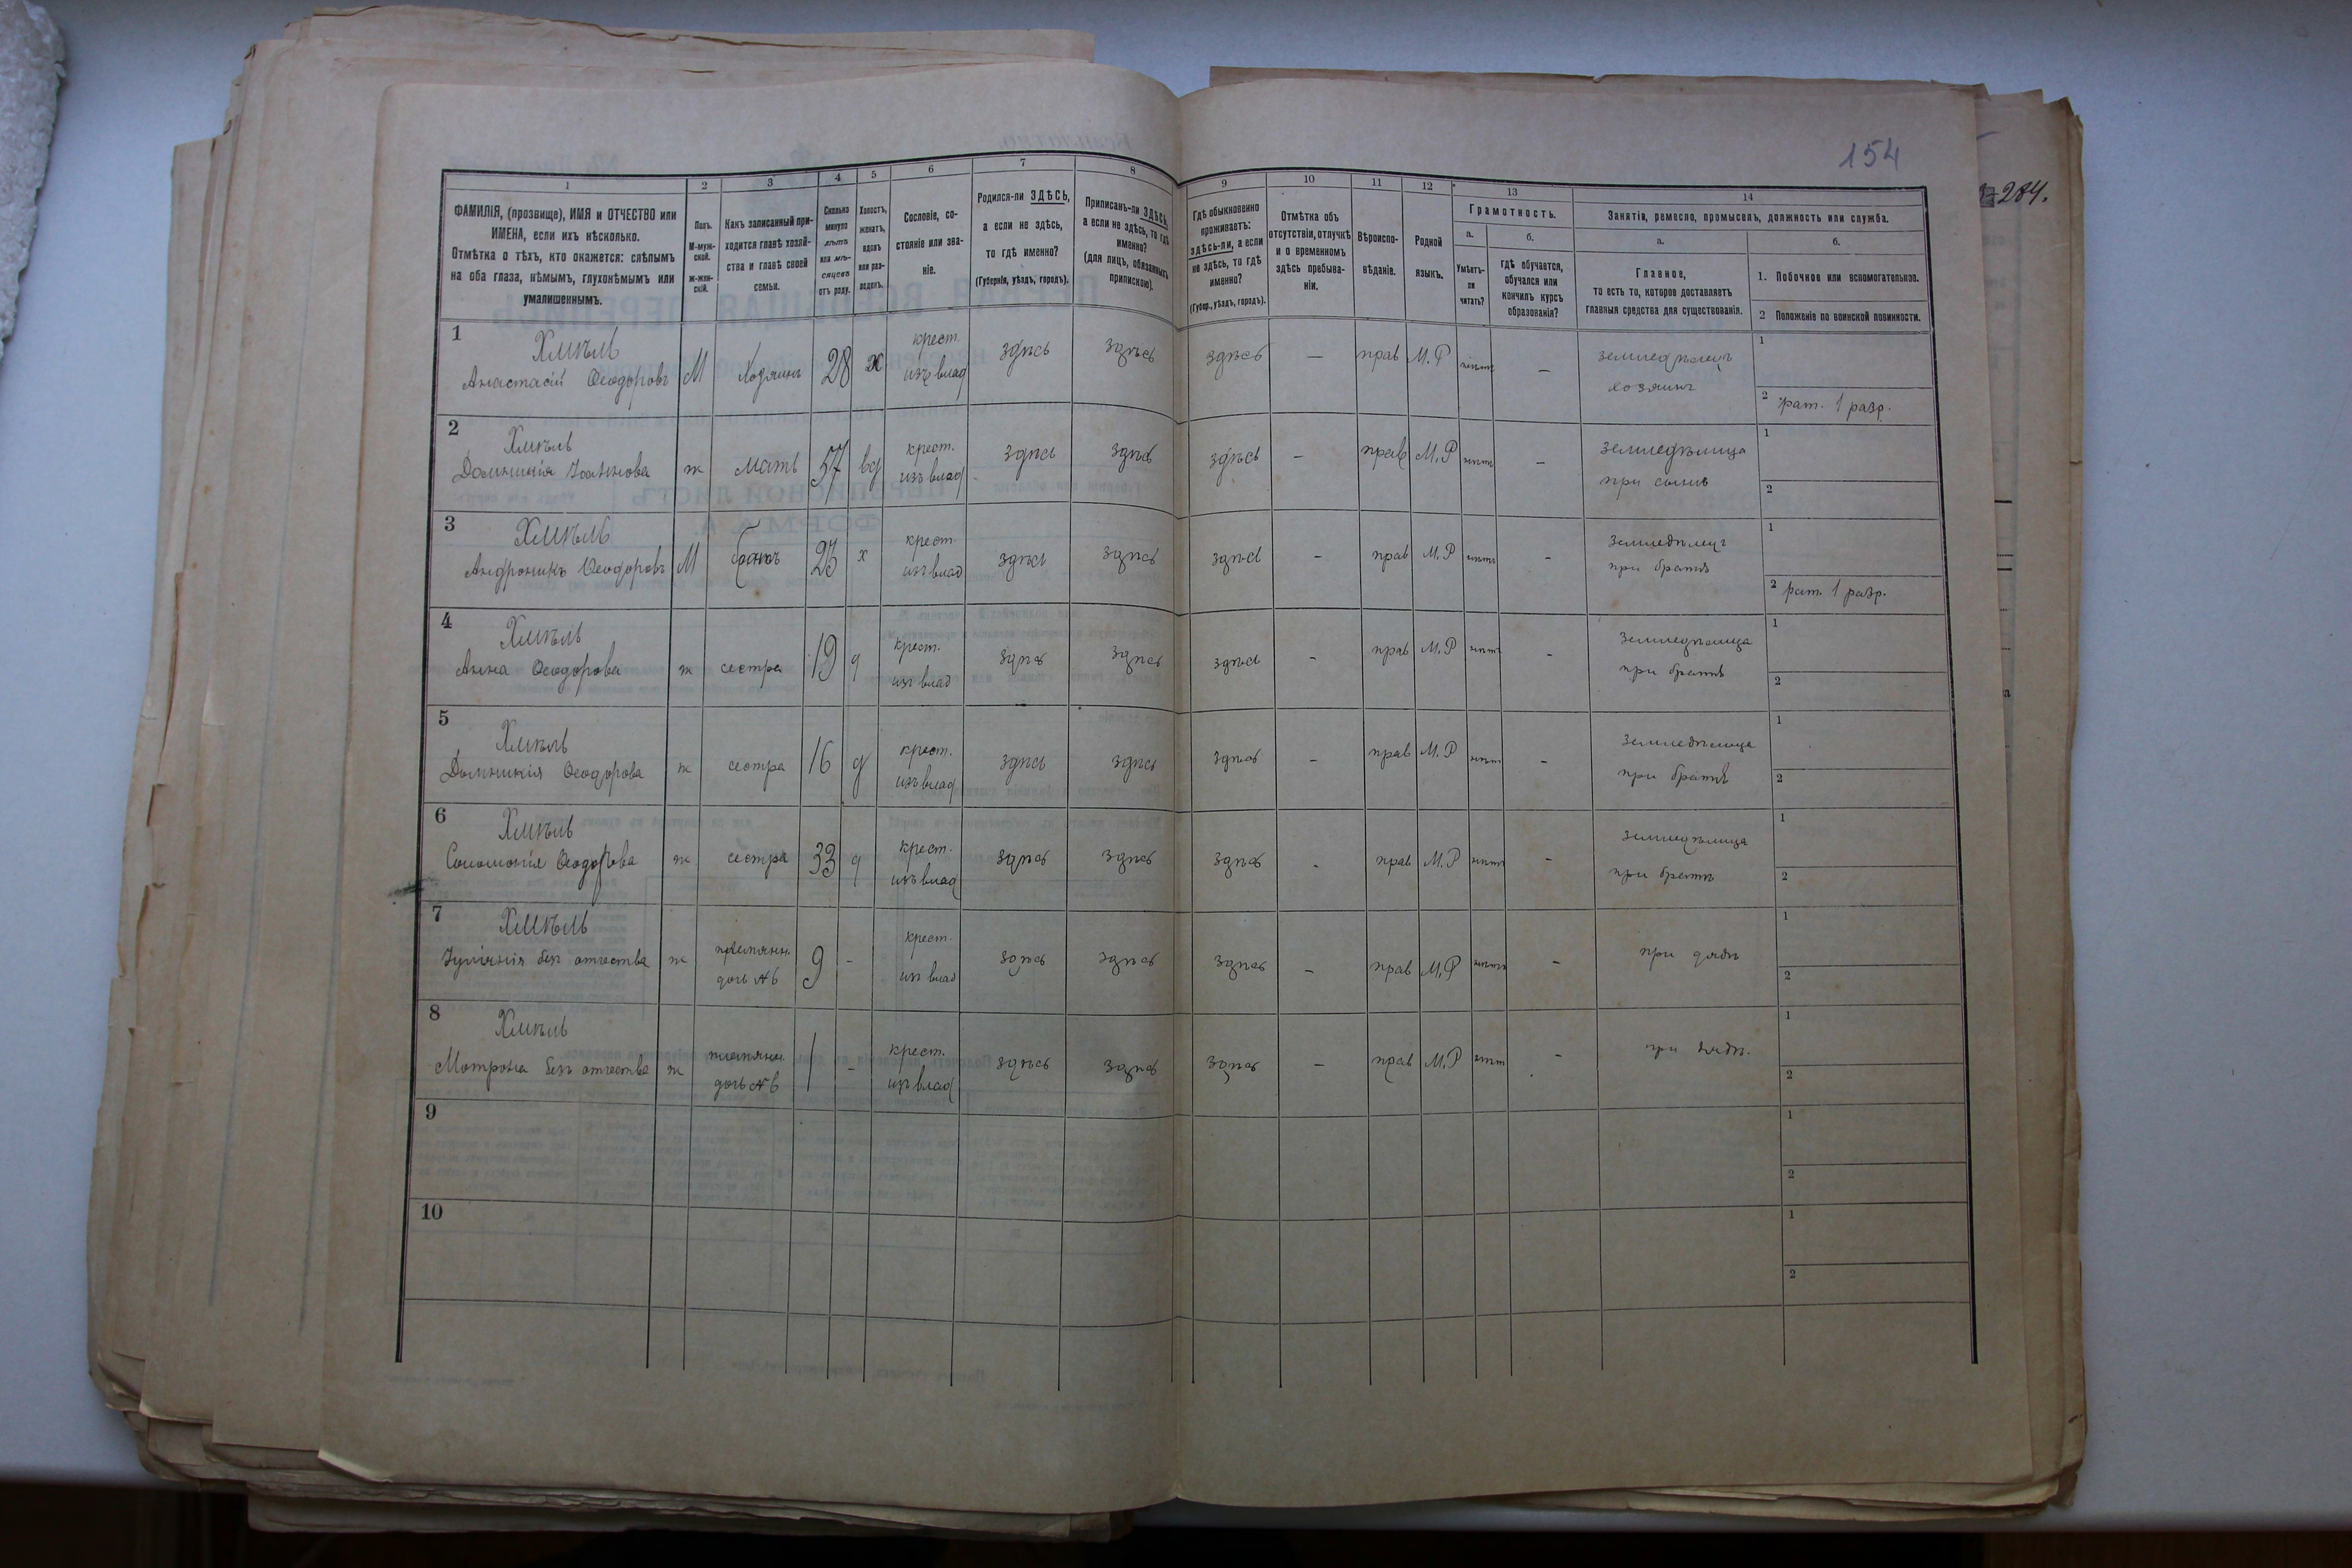 154
284.
1
2
3
4
5
6
7
8
9
10
11
12
13
14
ФАМИЛІЯ, (прозвище), ИМЯ и ОТЧЕСТВО или
ИМЕНА, если ихъ нѣсколько.
Отмѣтка о тѣхъ, кто окажется: слѣпымъ
на оба глаза, нѣмымъ, глухонѣмымъ или
умалишеннымъ.
Полъ.
М-муж-
ской.
Ж-жен-
скій.
Какъ записанный при-
ходится главѣ хозяй-
ства и главѣ своей
семьи.
Сколько
минуло
лѣтъ
или мѣ-
сяцевъ
отъ роду.
Холостъ,
женатъ,
вдовъ
или раз-
веденъ.
Сословіе, со-
стояніе или зва-
ніе.
Родился-ли ЗДѢСЬ,
а если не здѣсь,
то гдѣ именно?
(Губернія, уѣздъ, городъ).
Приписанъ-ли ЗДѢСЬ,
а если не здѣсь, то гдѣ
именно?
(для лицъ, обязанныхъ
припискою).
Гдѣ обыкновенно
проживаетъ:
здѣсь-ли, а если
не здѣсь, то гдѣ
именно?
(Губер., уѣздъ, городъ).
Отмѣтка объ
отсутствіи, отлучкѣ
и о временномъ
здѣсь пребыва-
ніи.
Вѣроиспо-
вѣданіе.
Родной
языкъ.
Грамотность.
а.
Умѣетъ-
ли
читать?
б.
гдѣ обучается,
обучался или
кончилъ курсъ
образованія?
Занятія, ремесло, промыселъ, должность или служба.
а.
Главное,
то есть то, которое доставляетъ
главныя средства для существованія.
б.
1. Побочное или вспомогательное.
2 Положеніе по воинской повинности.
1 Хмѣль крест.
Анастасій Ѳеодоровъ М Хозяинъ 28 х изъ влад здѣсь здѣсь здѣсь — прав М.Р нѣтъ — земледѣлецъ
хозяинъ
1
2 рат. 1 разр.
2 Хмѣль крест.
Домникія Іоаннова ж мать 57 вд изъ влад здѣсь здѣсь здѣсь — прав М.Р нѣтъ — земледѣлица
при сынѣ
1
2
3 Хмѣль крест.
Андроникъ Ѳеодоровъ М 23 х изъ влад здѣсь здѣсь здѣсь — прав М.Р нѣтъ — земледѣлецъ
при братѣ
1
2 рат. 1 разр.
4 Хмѣль крест.
Анна Ѳеодорова ж сестра 19 д изъ влад здѣсь здѣсь здѣсь — прав М.Р нѣтъ — земледѣлица
при братѣ
1
2
5 Хмѣль крест.
Домникія Ѳеодорова ж сестра 16 д изъ влад здѣсь здѣсь здѣсь — прав М.Р нѣтъ — земледѣлица
при братѣ
1
2
6 Хмѣль крест.
Соломонія Ѳеодорова ж сестра 33 д изъ влад здѣсь здѣсь здѣсь - прав М.Р нѣтъ — земледѣлица
при братѣ
1
2
7 Хмѣль крест.
Іуліанія безъ отчества ж племянн. дочь №6 9 - изъ влад здѣсь здѣсь здѣсь — прав М.Р нѣтъ — при дядѣ
1
2
8 Хмѣль крест.
Мотрона безъ отчества ж племянн. дочь №6 1 - изъ влад здѣсь здѣсь здѣсь — прав М.Р нѣтъ - при дядѣ.
1
2
9
1
2
10
1
2